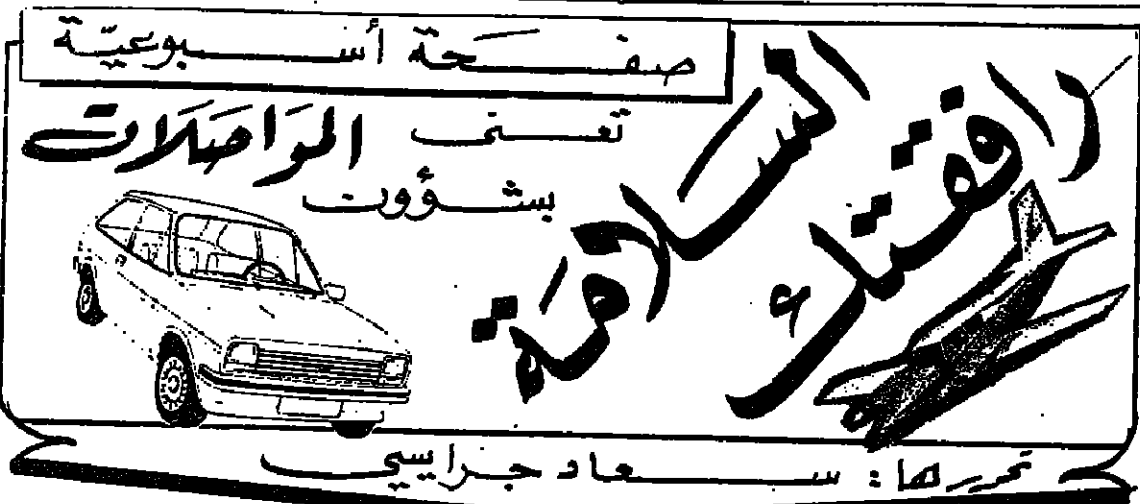 صفحة أسبوعيّة
تعنى
بشؤون
المَوَاصَلَات
رافقتك
السَّلامَة
تحررها: سعاد جرايسي